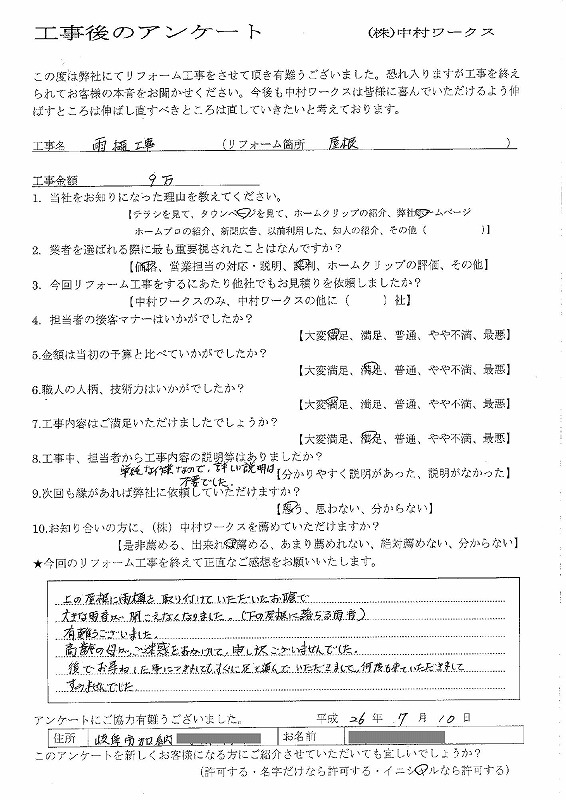 工事後のアンケート　　　(株)中村ワークス
この度は弊社にてリフォーム工事をさせて頂き有難うございました。恐れ入りますが工事を終え
られてお客様の本音をお聞かせください。今後も中村ワークスは皆様に喜んでいただけるよう伸
ばすところは伸ばし直すべきところは直していきたいと考えております。
工事名　雨樋工事　(リフォーム箇所　屋根　)
工事金額　9万
1. 当社をお知りになった理由を教えてください。
【チラシを見て、タウンページを見て、ホームクリップの紹介、弊社ホームページ
ホームプロの紹介、新聞広告、以前利用した、知人の紹介、その他（　　　）】
2. 業者を選ばれる際に最も重要視されたことはなんですか？
【価格、営業担当の対応・説明、評判、ホームクリップの評価、その他】
3. 今回リフォーム工事をするにあたり他社でもお見積りを依頼しましたか？
【中村ワークスのみ、中村ワークスの他に（　　）社】
4. 担当者の接客マナーはいかがでしたか？
【大変満足、満足、普通、やや不満、最悪】
5.金額は当初の予算と比べていかがでしたか？
【大変満足、満足、普通、やや不満、最悪】
6.職人の人柄、技術力はいかがでしたか？
【大変満足、満足、普通、やや不満、最悪】
7.工事内容はご満足いただけましたでしょうか？
【大変満足、満足、普通、やや不満、最悪】
8.工事中、担当者から工事内容の説明等はありましたか？
単純な作業なので、詳しい説明は
不要でした。
【分かりやすく説明があった、説明がなかった】
9.次回も縁があれば弊社に依頼していただけますか？
【思う、思わない、分からない】
10.お知り合いの方に、(株)中村ワークスを薦めていただけますか？
【是非薦める、出来れば薦める、あまり薦めれない、絶対薦めない、分からない】
★今回のリフォーム工事を終えて正直なご感想をお願いいたします。
上の屋根に雨樋を取り付けていただいたお陰で
大きな雨音が聞こえなくなりました。(下の屋根に落ちる雨音)
有難うございました。
高齢の母が、ご迷惑をおかけして、申し訳ございませんでした。
後でお尋ねした事につきましても、すぐに足を運んでいただきまして、何度も来ていただきまして
すみませんでした。
アンケートにご協力有難うございました。　平成 26 年 7 月 10 日
住所　岐阜市加納　お名前
このアンケートを新しくお客様になる方にご紹介させていただいても宜しいでしょうか？
(許可する・名字だけなら許可する・イニシャルなら許可する)